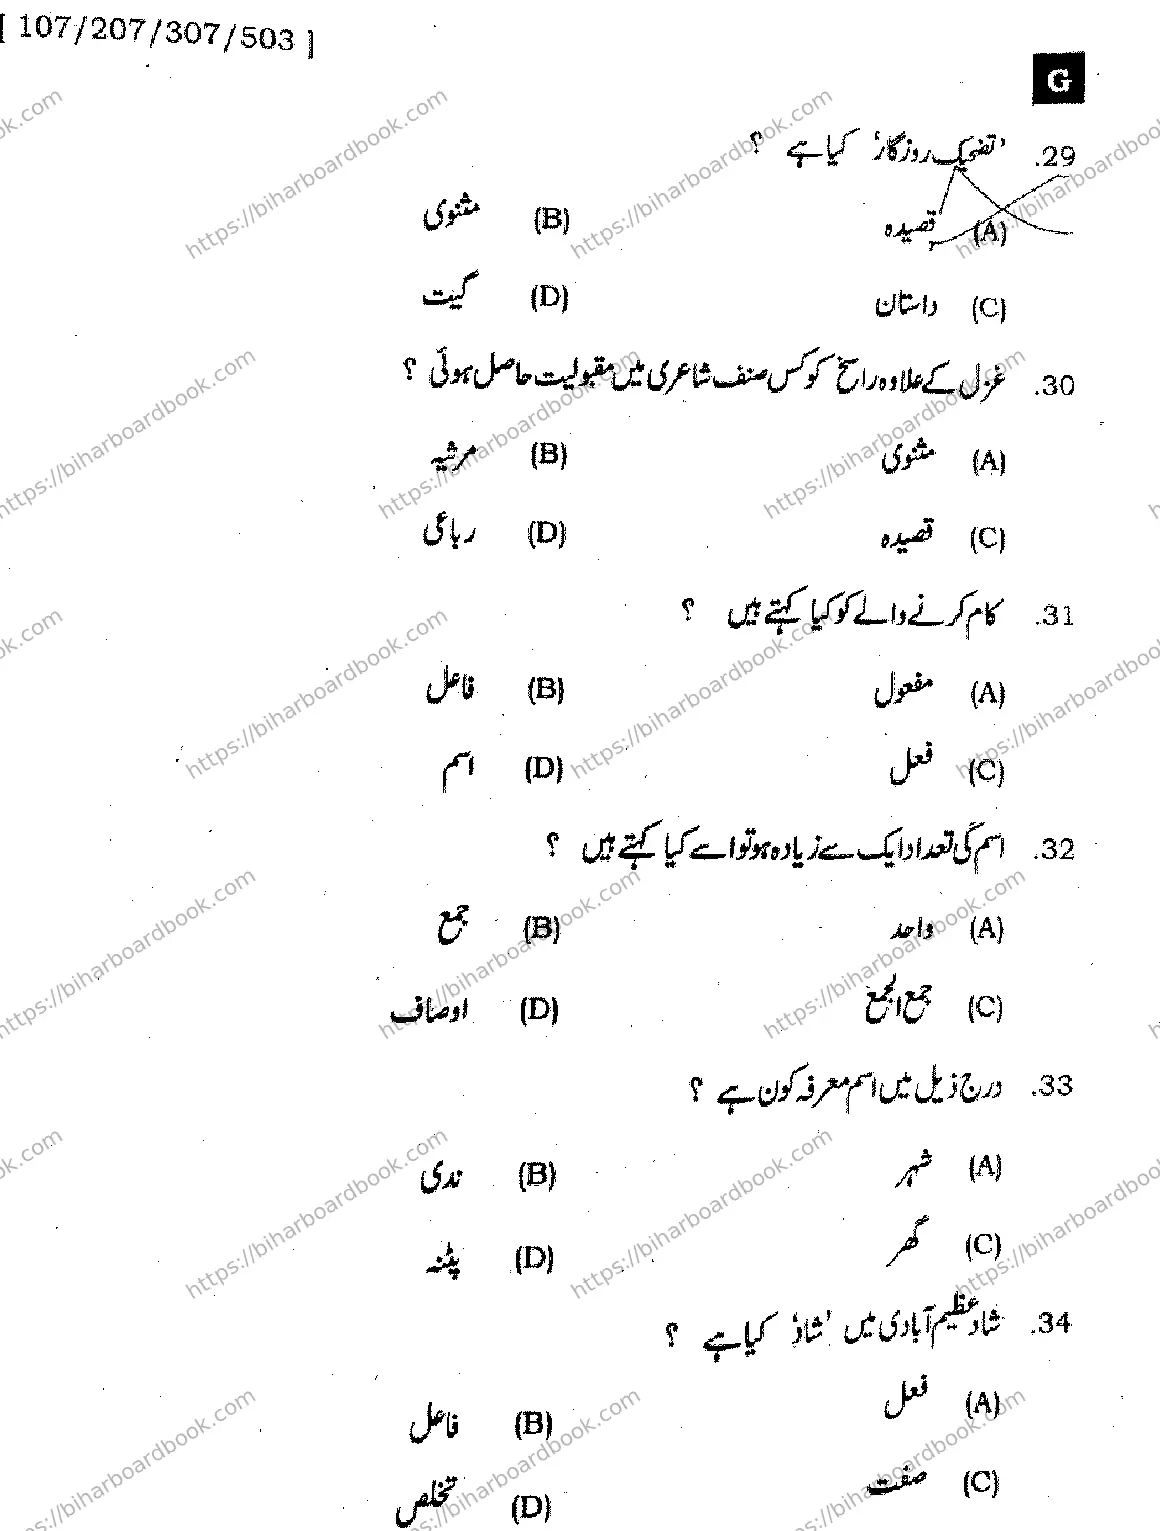 [ 107/207/307/503 ]
G
29. ’تضحیک روزگار‘ کیا ہے ؟
(A) قصیدہ (B) مثنوی
(C) داستان (D) گیت
30. غزل کے علاوہ راسخ کو کس صنف شاعری میں مقبولیت حاصل ہوئی ؟
(A) مثنوی (B) مرثیہ
(C) قصیدہ (D) رباعی
31. کام کرنے والے کو کیا کہتے ہیں ؟
(A) مفعول (B) فاعل
(C) فعل (D) اسم
32. اسم کی تعداد ایک سے زیادہ ہو تو اسے کیا کہتے ہیں ؟
(A) واحد (B) جمع
(C) جمع الجمع (D) اوصاف
33. درج ذیل میں اسم معرفہ کون ہے ؟
(A) شہر (B) ندی
(C) گھر (D) پٹنہ
34. شاد عظیم آبادی میں ’شاد‘ کیا ہے ؟
(A) فعل (B) فاعل
(C) صفت (D) تخلص
https://biharboardbook.com